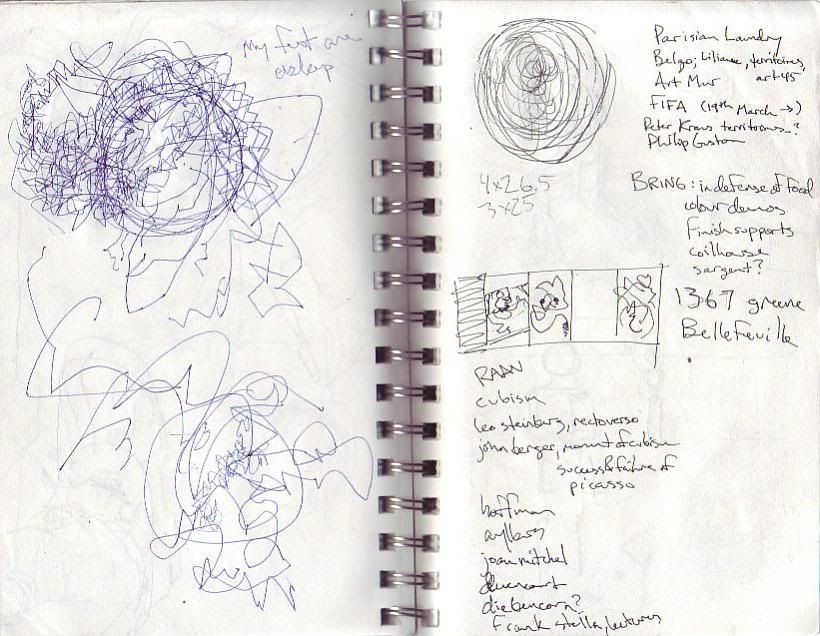 My feet are
asleep
Parisian Laundry
Belgo; Liliane, territoires,
art 45
Art Mur
FIFA (19th March →)
Peter Kraus territories..?
Philip Guston
4x26.5
3x25
BRING: in defense of food
colour demos
finish supports
coilhouse
sargent?
1367 greene
Bellefeuille
RAAN
cubism
leo steinburg, rectoverso
john berger, moment of cubism
success & failure of
picasso
hoffman
joan mitchel
diebencorn?
frank stella, lectures